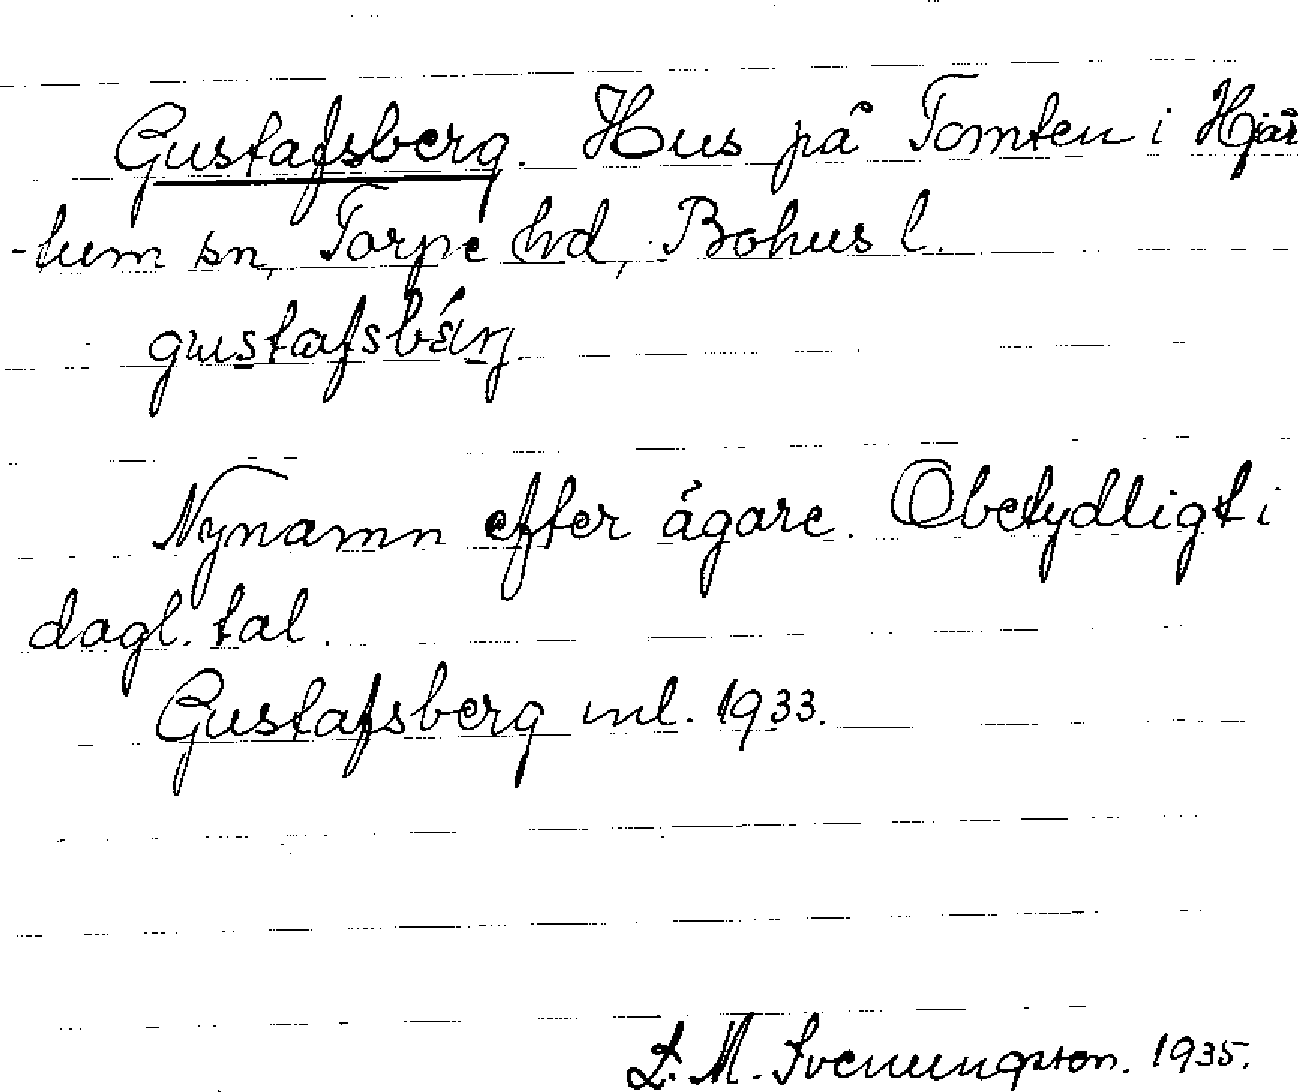 Gustafsberg. Hus på Tomten i Hjär
-tum sn, Torpe hd, Bohus l.
gustafsbärj
Nynamn efter ägare. Obetydligt i
dagl. tal.
Gustafsberg ml. 1933.
L. M. Svenungsson. 1935.